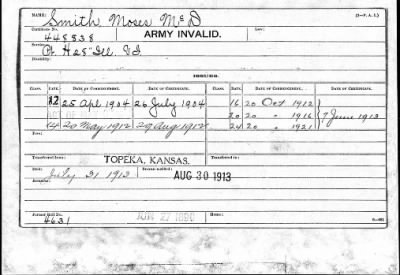 NAME: Smith Moses McD (3-P. A. I.)
Certificate No. 448838 ARMY INVALID. Law:
Service: Pt. H 28" Ill. V.I.
Disability:
ISSUES.
CLASS. RATE. DATE OF COMMENCEMENT. DATE OF CERTIFICATE. CLASS. RATE. DATE OF COMMENCEMENT. DATE OF CERTIFICATE.
12 25 Apl 1904 26 July 1904 16 20 Oct 1912
20 20 " 1916 7 June 1913
14 20 May 1912 29 Aug 1912 24 20 " 1921
Transferred from: TOPEKA, KANSAS. Transferred to:
Date: July 31 1913 AUG 30 1913
Former Roll No. 4631 JUN 27 1890 Home: